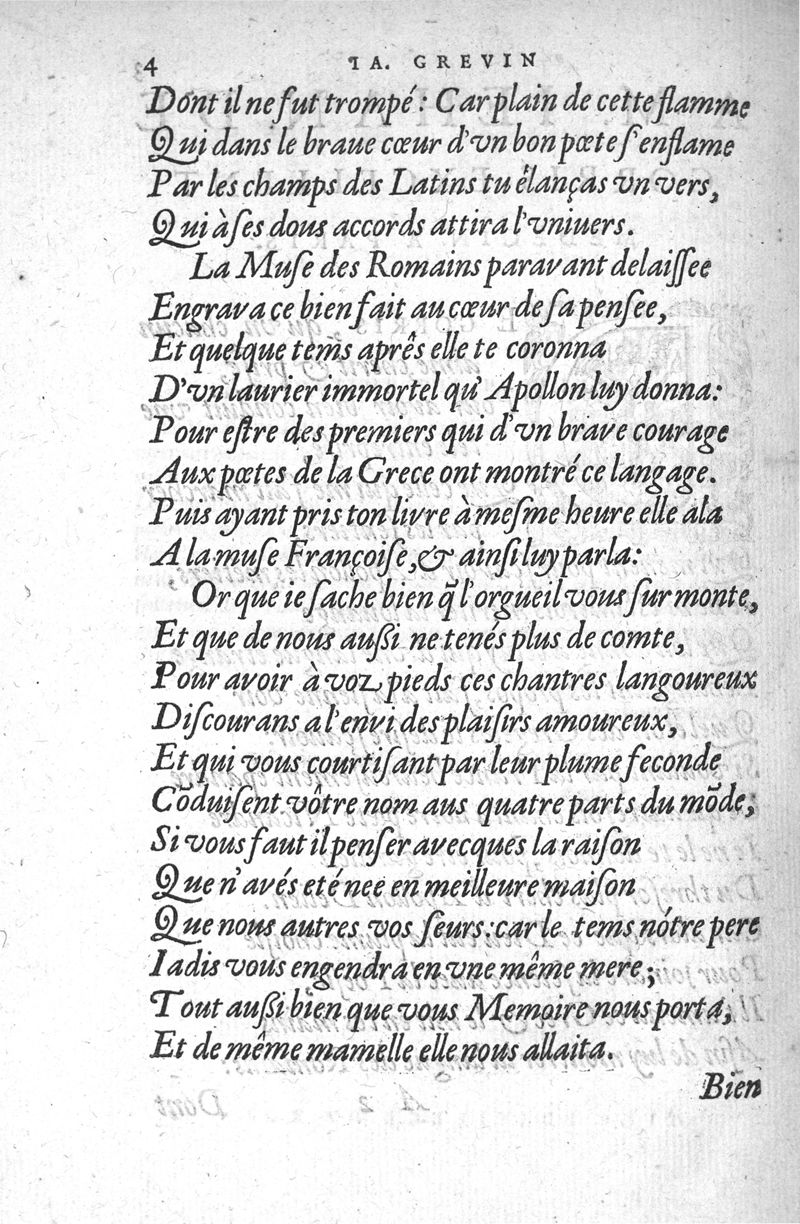 4 IA. GREVIN
Dont il ne fut trompé: Car plain de cette flamme
Qui dans le braue cœur d'vn bon pœte s'enflame
Par les champs des Latins tu élanças vn vers,
Qui à ſes dous accords attira l'vniuers.
La Muſe des Romains paravant delaiſſee
Engrava ce bien fait au cœur de ſa penſee,
Et quelque tems aprês elle te coronna
D'vn laurier immortel qu' Apollon luy donna:
Pour eſtre des premiers qui d'vn brave courage
Aux pœtes de la Grece ont montré ce langage.
Puis ayant pris ton livre à meſme heure elle ala
A la muſe Françoiſe, & ainſi luy parla:
Or que ie ſache bien q̃ l'orgueil vous ſurmonte,
Et que de nous außi ne tenés plus de comte,
Pour avoir à voz pieds ces chantres langoureux
Diſcourans a l'envi des plaiſirs amoureux,
Et qui vous courtiſant par leur plume feconde
Cõduiſent vôtre nom aus quatre parts du mõde;
Si vous faut il penſer avecques la raiſon
Que n'avés eté nee en meilleure maiſon
Que nous autres vos ſeurs: car le tems nótre pere
Iadis vous engendra en vne même mere;
Tout außi bien que vous Memoire nous porta,
Et de même mamelle elle nous allaita.
Bien